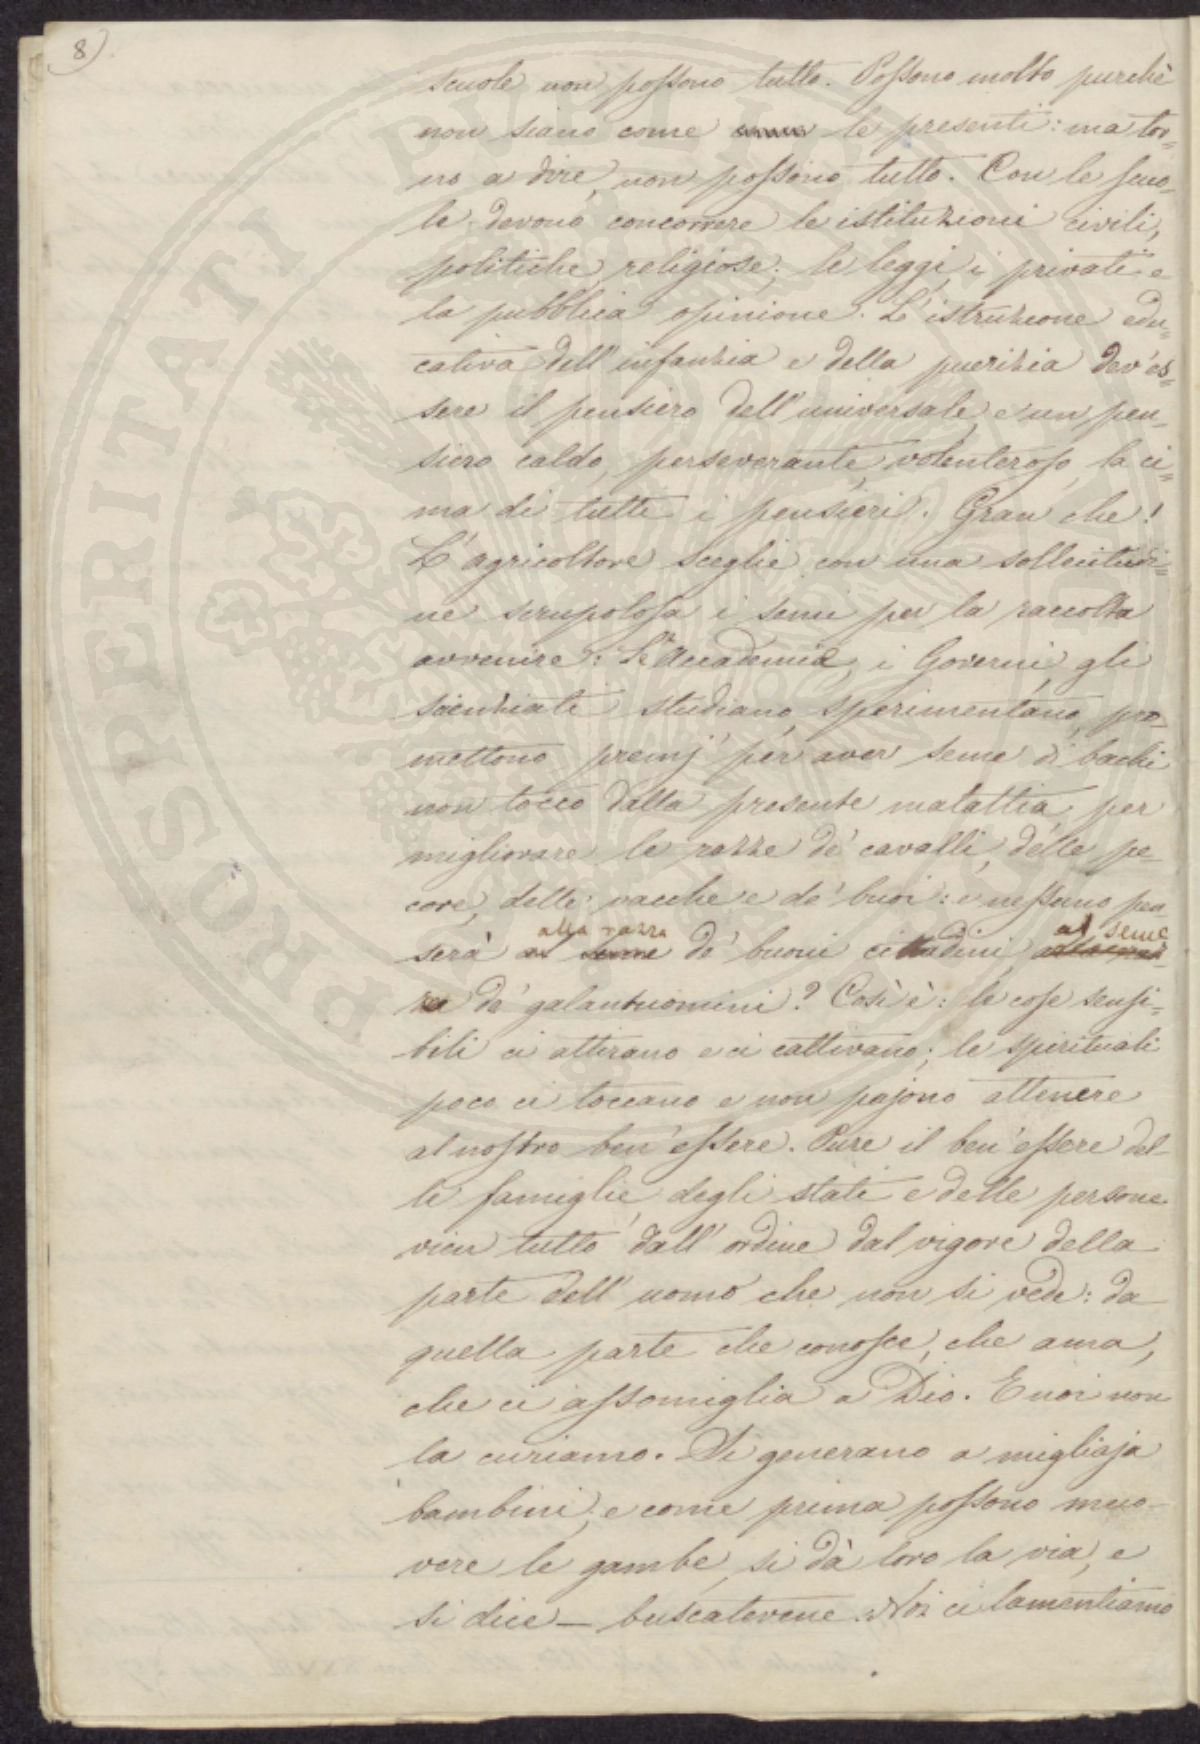 8)
scuole non possono tutto. Possono molto purchè
non siano come le presenti: ma tor=
no a dire, non possono tutto. Con le scuo=
le devono concorrere le istituzioni civili,
politiche, religiose; le leggi, i privati e
la pubblica opinione. L'istruzione edu=
cativa dell'infanzia e della puerizia dev'es=
sere il pensiero dell'universale, e un pen=
siero caldo, perseverante, volenteroso, la ci=
ma di tutti i pensieri. Gran che!
L'agricoltore sceglie con una sollecitudi=
ne scrupolosa i semi per la raccolta
avvenire: Le Accademie, i Governi, gli
scienziati studiano, sperimentano, pro=
mettono premj per aver seme di bachi
non tocco dalla presente malattia, per
migliorare le razze de' cavalli, delle pe=
core, delle vacche e de' buoi: e nessuno pen=
alla razza al seme
serà al seme de' buoni cittadini, alla raz=
za de' galantuomini? Così è: le cose sensi=
bili ci attirano e ci cattivano; le spirituali
poco ci toccano e non pajono attenere
al nostro ben'essere. Pure il ben'essere del=
le famiglie, degli stati e delle persone
vien tutto dall'ordine dal vigore della
parte dell'uomo che non si vede: da
quella parte che conosce, che ama,
che ci assomiglia a Dio. E noi non
la curiamo. Si generano a migliaja
bambini; e come prima possono muo=
vere le gambe, si dà loro la via, e
si dice — buscatevene. Noi ci lamentiamo
PROSPERITATI